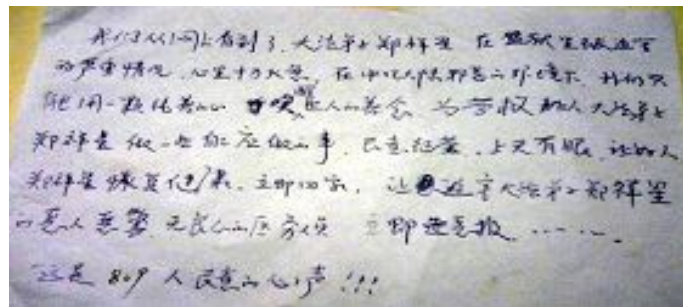 我们从网上看到了,大法弟子郑祥星在监狱里被迫害
的严重情况,心里十分难,在中共邪恶的环境下,我们只
能用一颗善心唤醒世人的善念,为大法弟子
郑祥星做一些能应做的事,民意,上天有眼,让好人
郑祥星恢复过来,立即回家,让迫害大法弟子郑祥星
的恶人恶警,无良心的医务人员立即遭恶报……
这是809人民意的心声!!!